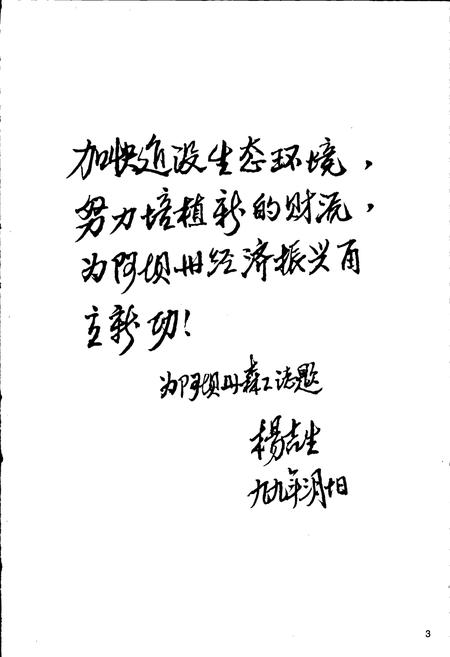 加快建设生态环境，
努力培植新的财源，
为阿坝州经济振兴再
立新功！
为阿坝州森工志题
杨吉生
九九年 月 日
3